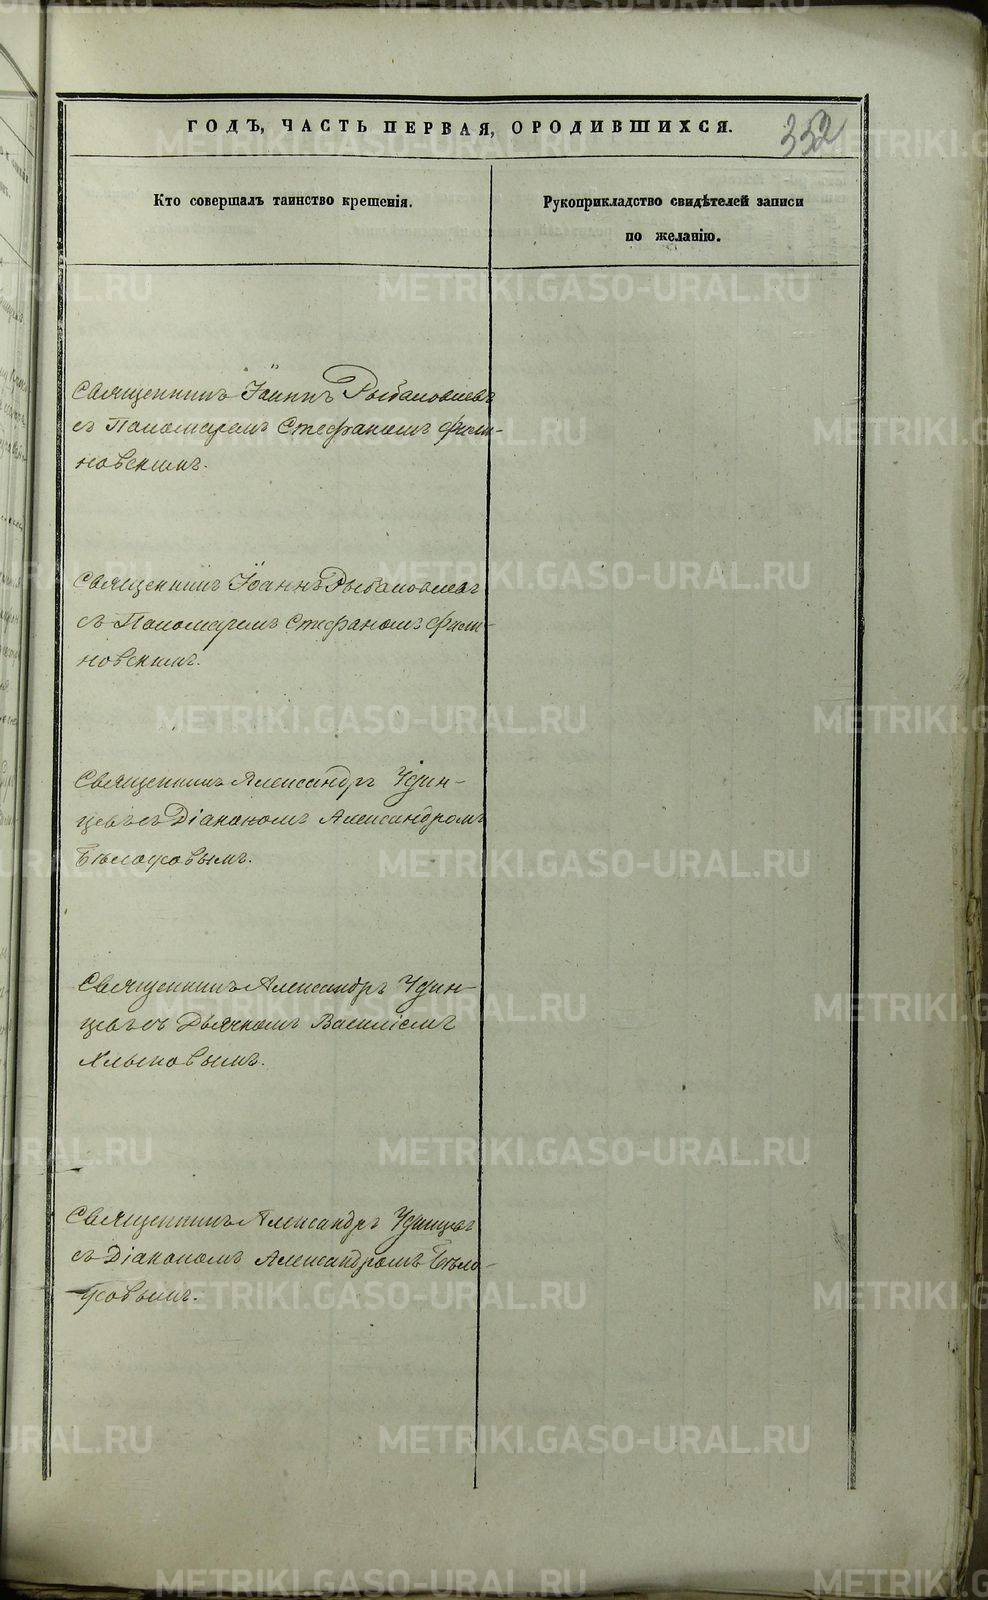 ГОДЪ, ЧАСТЬ ПЕРВАЯ, ОРОДИВШИХСЯ.
352
Кто совершалъ таинство крещенія.
Рукоприкладство свидѣтелей записи
по желанію.
Священникъ Іоаннъ Рыбаловлевъ
съ Пономаремъ Стефаномъ Фили-
новскимъ.
Священникъ Іоаннъ Рыбаловлевъ
съ Пономаремъ Стефаномъ Фили-
новскимъ.
Священникъ Александръ Удин-
цевъ съ Діакономъ Александромъ
Священникъ Александръ Удин-
цевъ съ Дьячкомъ Василіемъ
Хлыновымъ.
Священникъ Александръ Удинцевъ
съ Діакономъ Александромъ
METRIKI.GASO-URAL.RU